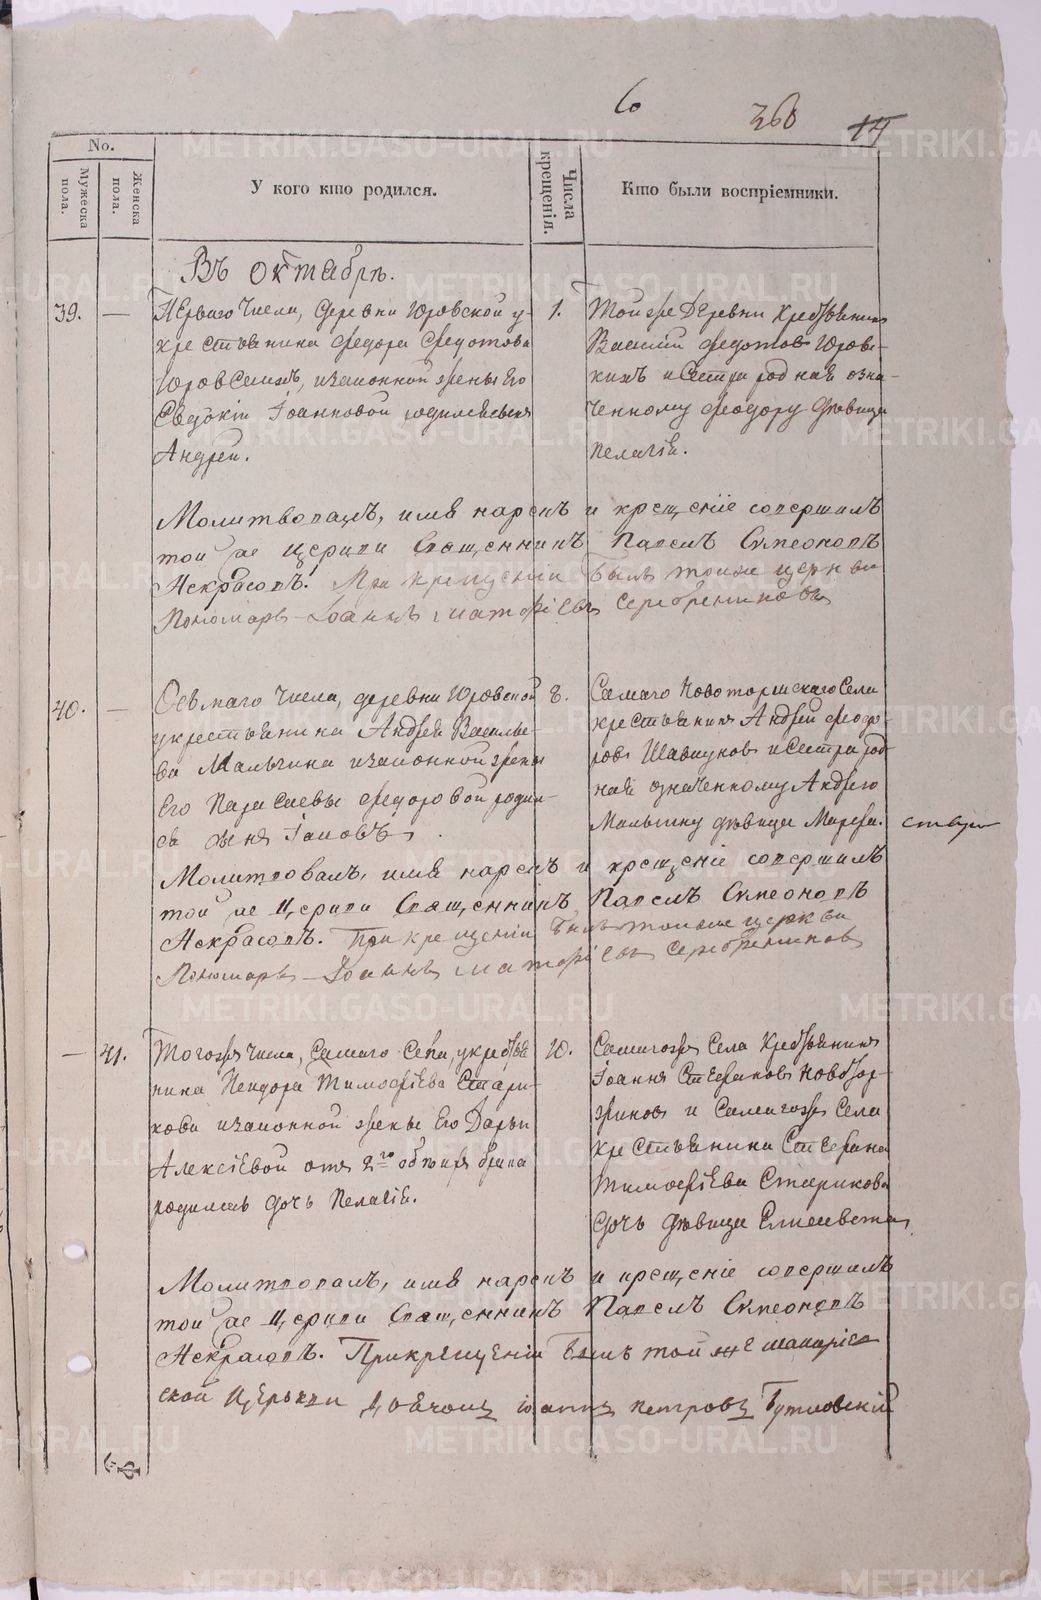 6 360 14
No.
Мужеска пола.
Женска пола.
У кого кто родился.
Числа крещенія.
Кто были воспріемники.
Въ октябрѣ.
39. —
Перваго Числа, Деревни Юровской у
крестьянина Федора Федотова
Юровскихъ, и законной жены Его
Евдокіи Іоанновой родился сынъ
Андрей.
1.
Той же Деревни Крестьянинъ
Василий Федотовъ Юровс-
кихъ и сестра родная озна-
ченному Феодору дѣвица
Пелагія.
Молитвовалъ, имя нарекъ и крещеніе совершилъ
той же Церкви Священникъ Павелъ Симеоновъ
Некрасовъ. При крещеніи былъ тоиже церкви
Пономарь Іоаннъ Матфіевъ Серебрениковъ
40. —
Осьмаго Числа, деревни Юровской
у крестьянина Андрея Василье-
ва Мальгина и законной жены
Его Параскевы Федоровой родил-
ся сынъ Іаковъ.
8.
Самаго Новоторжскаго Села
крестьянинъ Андрей Феодо-
ровъ Шавкуновъ и Сестра род-
ная означенному Андрею
Мальгину дѣвица Марфа.
Молитвовалъ, имя нарекъ и крещеніе совершилъ
той же Церкви Священникъ Павелъ Симеоновъ
Некрасовъ. При крещеніи былъ тоиже церкви
Пономарь Іоаннъ Матфіевъ Серебрениковъ
— 41.
Тогожъ Числа, Самаго Села, у кресть-
нина Исидора Тимофіева Стари-
кова и законной жены Его Дарьи
Алексіевой отъ 2го обоихъ брака
родилась дочь Пелагія.
10.
Самагожъ Села Крестьянинъ
Іоаннъ Стефановъ
и Самагожъ Села
крестьянина Стефана
Тимофіева Старикова
дочь дѣвица Елисавета
Молитвовалъ, имя нарекъ и крещеніе совершилъ
той же Церкви Священникъ Павелъ Симеоновъ
Некрасовъ. При крещеніи былъ той же
ской Церькви Дьячокъ Іоаннъ Петровъ Бутковскій
METRIKI.GASO-URAL.RU